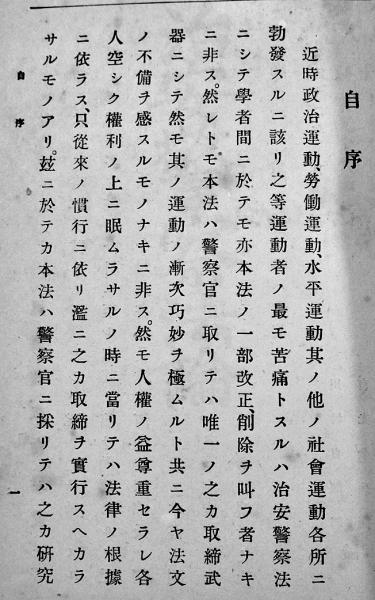 自序
近時政治運動、勞働運動、水平運動其ノ他ノ社會運動各所ニ
勃發スルニ該リ之等運動者ノ最モ苦痛トスルハ治安警察法
ニシテ學者間ニ於テモ亦本法ノ一部改正、削除ヲ叫フ者ナキ
ニ非ス。然レトモ本法ハ警察官ニ取リテハ唯一ノ之カ取締武
器ニシテ然モ其ノ運動ノ漸次巧妙ヲ極ムルト共ニ今ヤ法文
ノ不備ヲ感スルモノナキニ非ス。然モ人權ノ益尊重セラレ各
人空シク權利ノ上ニ眠ムラサルノ時ニ當リテハ法律ノ根據
ニ依ラス、只從來ノ慣行ニ依リ濫ニ之カ取締ヲ實行スヘカラ
サルモノアリ。玆ニ於テカ本法ハ警察官ニ採リテハ之カ硏究
自序
一